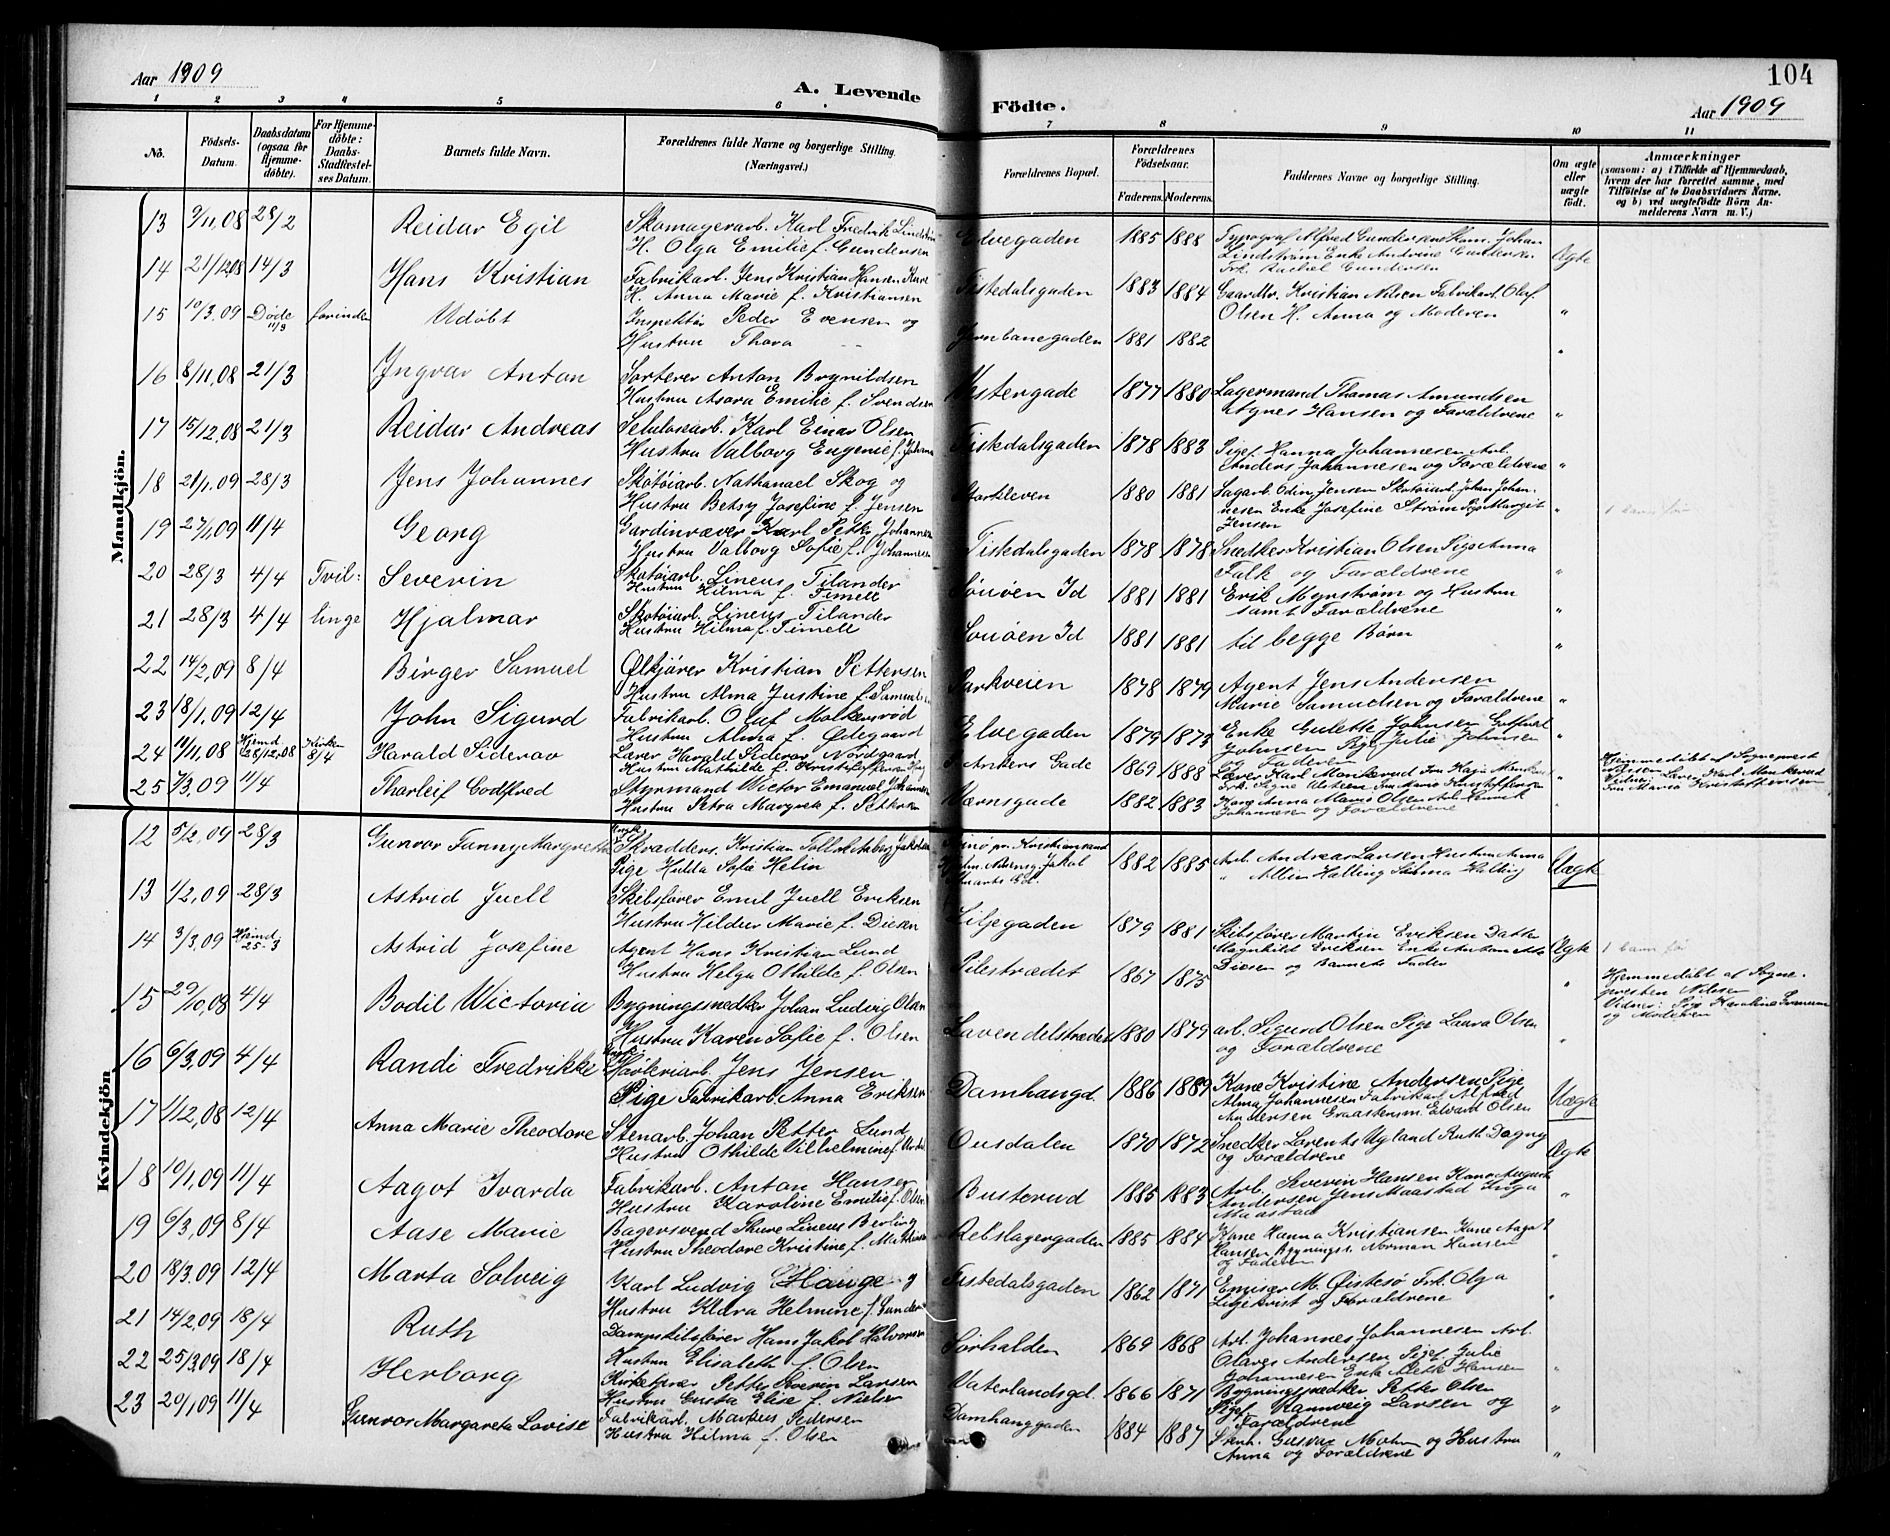 Aar 1909
A. Levende
Födte.
104
Aar 1909
1 2 3 4 5 6 7 8 9 10 11
No.
Födsels-Datum.
Daabsdatum (ogsaa for Hjemmedöbte).
For Hjemmedöbte: Daabs-Stadfæstelses Datum.
Barnets fulde Navn.
Forældrenes fulde Navne og borgerlige Stilling. (Næringsvei.)
Forældrenes Bopæl.
Forældrenes Födselsaar.
Faderens. Moderens.
Faddernes Navne og borgerlige Stilling.
Om ægte eller uægte födt.
Anmærkninger
(saasom: a) i Tilfælde af Hjemmedaab, hvem der har forrettet samme, med Tilföielse af to Daabsvidners Navne. og b) ved uægtefödte Börn Anmelderens Navn m. V.)
Mandkjön.
13 9/11,08 28/2 Reidar Egil Skomagerarb. Karl Fredrik Lindstrøm
H. Olga Emilie f. Gundersen Elvegaden 1885 1888 Typograf Alfred Gundersen Skom. Johan
Lindstrøm Enke Andrine Gundersen
Frk. Rachel Gundersen Ægte
14 21/12 08 14/3 Hans Kristian Fabrikarb. Jens Kristian Hansen
H. Anna Marie f. Kristiansen Tistedalsgaden 1883 1884 Gaardbr. Kristian Nilsen Fabrikarb. Olaf
Olsen H. Anna og Moderen "
15 10/3.09 Døde 11/3 forinden Udøbt Inspektør Peder Evensen og
Hustru Thora Jernbanegaden 1881 1882 "
16 8/11,08 21/3 Ingvar Anton Sorterer Anton Brynildsen
Hustru Asora Emilie f. Svendsen Vestergade 1877 1880 Lagermand Thomas Amundsen
Agnes Hansen og Forældrene "
17 15/12,08 21/3 Reidar Andreas Celulosearb. Karl Einar Olsen
Hustru Valborg Eugenie f. Tistedalsgaden 1878 1883 Pigef. Hanna Johannesen Arb.
Anders Johannesen og Forældrene "
18 21/1,09 28/3 Jens Johannes Skotøiarb. Nathanael Skog og
Hustru Betsy Josefine f. Jensen Storkleven 1880 1881 Sagarb. Odin Jensen Skotøiarb. Johan Johan-
nesen Enke Josefine Strøm Pige Margit
Jensen "
19 27/1,09 11/4 Georg Gardinvæver Karl Petter Johannesen
Hustru Valborg Sofie f. Johannesen Tistedalsgaden 1878 1878 Snedker Kristian Olsen Pige Anna
Falk og Forældrene "
20 28/3 4/4 Tvil- Severin Skotøiarb. Lineus Tilander
Hustru Hilma f. Timell Souøen Id 1881 1881 Erik Mynstrøm og Hustru
samt Forældrene "
21 28/3 4/4 linge Hjalmar Skotøiarb. Lineus Tilander
Hustru Hilma f. Timell Souøen Id 1881 1881 til begge Børn "
22 14/2,09 8/4 Birger Samuel Ølkjører Kristian Pettersen
Hustru Alma Justine f. Samuels Parkveien 1878 1879 Agent Jens Andersen
Marie Samuelsen og Forældrene "
23 18/1,09 12/4 John Sigurd Fabrikarb. Oluf Molkersrød
Hustru Alma f. Ødegaard Elvegaden 1879 1873 Enke Gulette Johnsen Gotfred
Johnsen Pige Julie Johnsen
og Faderen "
24 11/11,08 Hjemd. 28/12,08 Kirken 8/4 Harald Siderov Lærer Harald Siderov Nordgaard
Hustru Mathilde f. Ankers Gade 1869 1888 Lærer Karl Monkerud Fru Haja "
Hjemmedøbt af Sogneprest
Nilssen
Vidner: Lærer Karl Monkerud
Fru Marie Kristoffersen
25 7/3,09 11/4 Tharleif Godtfred Styrmand Victor Emanuel Johannesen
Hustru Petra Margrete f. Pettersen Værnsgade 1882 1883 Kone Anna Marie Olsen Arb. Henrik
Johannesen og Forældrene "
Kvindekjön
12 5/2,09 28/3 Gunvor Fanny Margrethe Skrædders. Kristian Tollak Aaberg Jakobsen
Pige Hulda Sofie Helin 1882 1885 Arb. Andreas Larsen Hustru Anna
" Albin Halling Hilma Halling Uægte
13 1/2,09 28/3 Astrid Juell Skibsfører Emil Juell Eriksen
Hustru Hildur Marie f. Diesen Liljegaden 1879 1881 Skibsfører Martin Eriksen Datter
Magnhild Eriksen Enke Antonette
Diesen og Barnets Fader Ægte
14 3/3,09 Hjemd. 25-3 Astrid Josefine Agent Hans Kristian Lund
Hustru Helga Othilde f. Olsen Pilestrædet 1867 1875 "
Hjemmedøbt af Sogne-
presten Nilssen
Vidner: Pige Karoline
og Moderen
15 29/10,08 4/4 Bodil Victoria Bygningssnedker Johan Ludvig Olsen
Hustru Karen Sofie f. Olsen Lavendelstrædet 1880 1879 arb. Sigurd Olsen Pige Laura Olsen
og Forældrene "
16 6/3,09 4/4 Randi Fredrikke Høvleriarb. Jens Jensen
Pige Fabrikarb. Anna Eriksen Damhangd. 1886 1889 Kone Kristine Andersen Pige
Alma Johannesen Fabrikarb. Alfred
Andersen Graastensm. Edvard Olsen Uægte
17 1/12,08 12/4 Anna Marie Theodore Stenarb. Johan Petter Lund
Hustru Othilde Vilhelmine f. Ousdalen 1870 1872 Snedker Lorents Ugland Ruth Dagny
og Forældrene Ægte
18 10/1,09 11/4 Aagot Ivarda Fabrikarb. Anton Hansen
Hustru Karoline Emilie f. Olsen Busterud 1885 1883 Arb. Severin Hansen Kone Augusta
Andersen Jens Maastad Inga
Maastad "
19 6/3,09 8/4 Aase Marie Bagersvend Thure Lineus Berling
Hustru Theodore Kristine f. Rebslagergaden 1885 1884 Kone Hanna Kristiansen Kone Aagot
Hansen Bygningss. Norman Hansen
og Faderen "
20 18/3.09 12/4 Marta Solveig Karl Ludvig Hauge og
Hustru Klara Helmine f. Gunder Tistedalsgaden 1862 1871 Emisær M. Øistesø Frk. Olga
Liljekvist og Forældrene "
21 14/2,09 18/4 Ruth Dampskibsfører Hans Jakob Halvorsen
Hustru Elisabeth f. Olsen Sørhalden 1869 1868 Arb. Johannes Johannesen Arb.
Olaves Andersen Pigef. Julie
Johannesen Enke Hansen "
22 25/3,09 18/4 Herborg Kirketjener Petter Severin Larsen
Hustru Gusta Elise f. Nielsen Vaterlandsgd. 1866 1871 Bygningssnedker Petter Olsen
Pigef. Rannveig Larsen og
Forældrene "
23 20/1,09 11/4 Gunvor Margareta Lovise Fabrikarb. Markus Pedersen
Hustru Hilma f. Olsen Damhanggaden 1884 1887 Stenh. Gustav Mohn og Hustru
Anna og Forældrene "